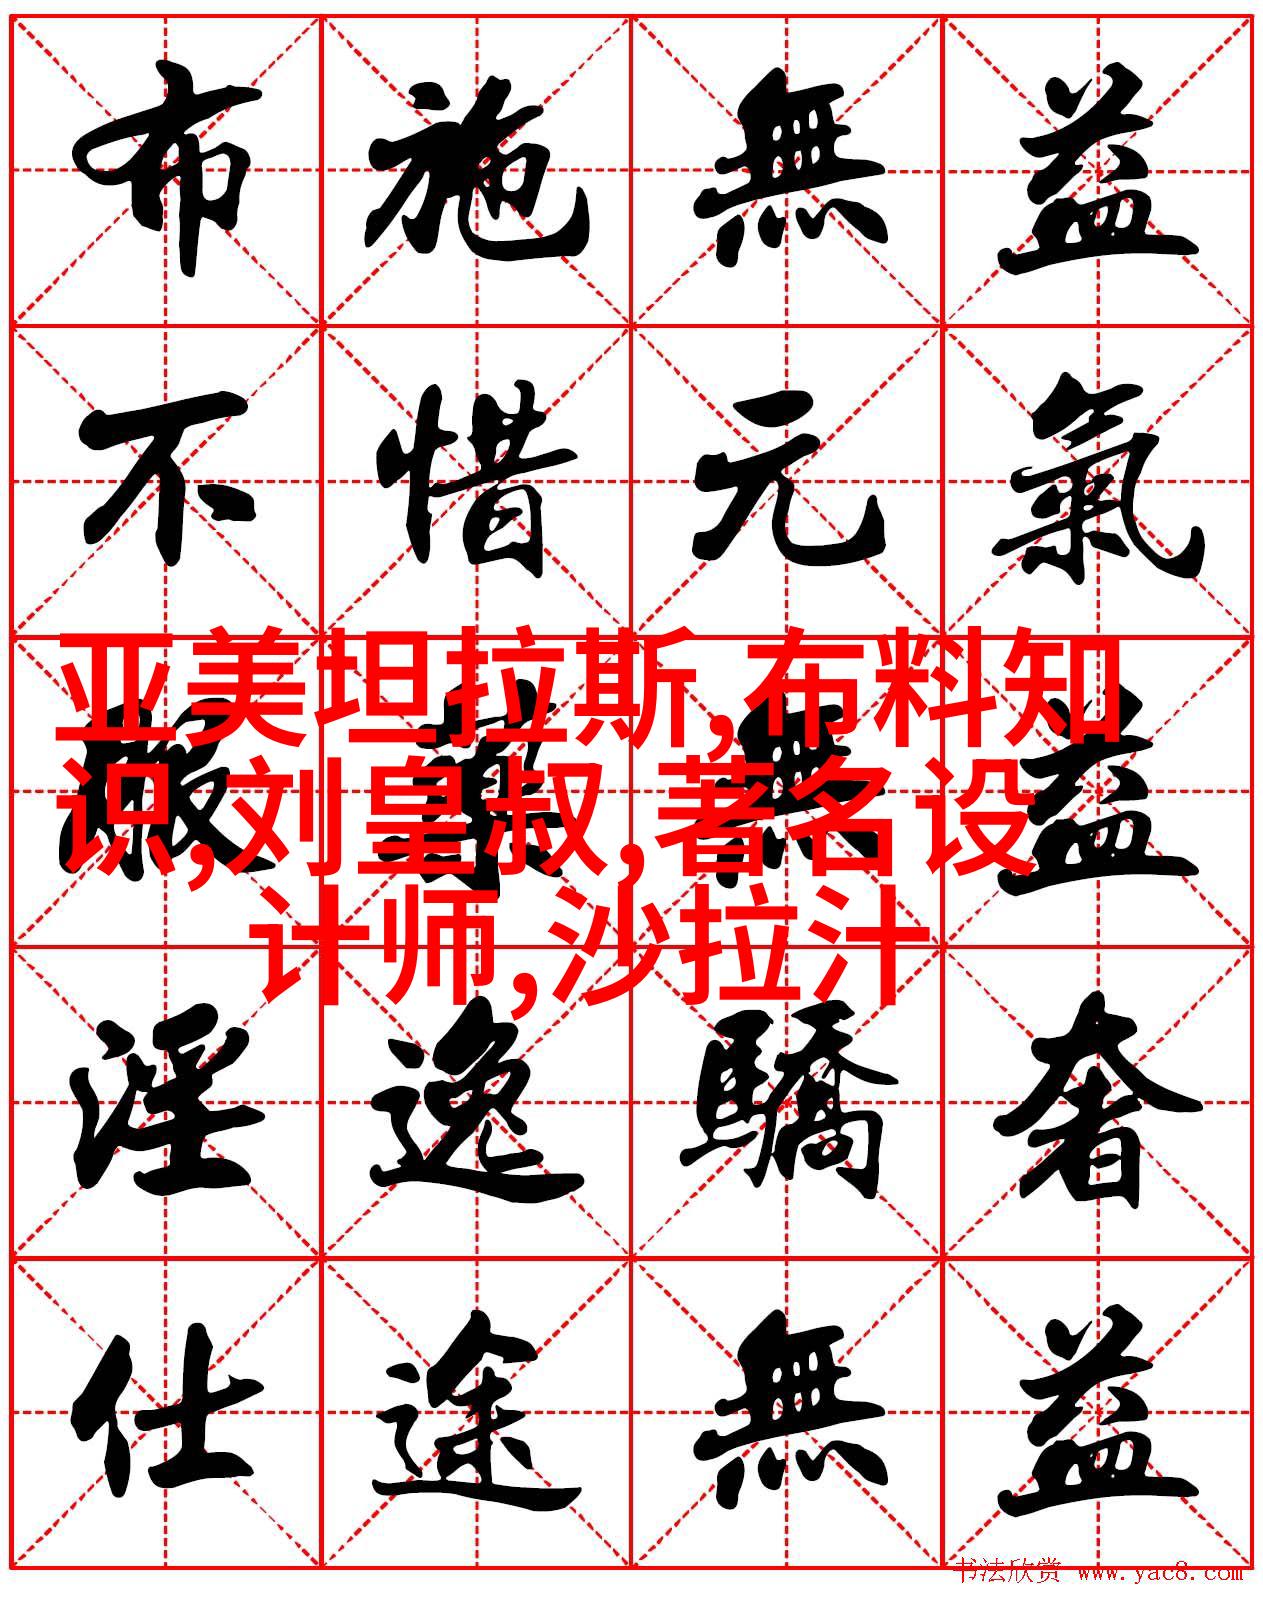 布施無益
不惜元氣
服藥無益
亚美坦拉斯,布料知
识,刘皇叔,著名设
计师,沙拉汁
淫逸驕奢
仕途無益
书法欣赏 www.yac8.com